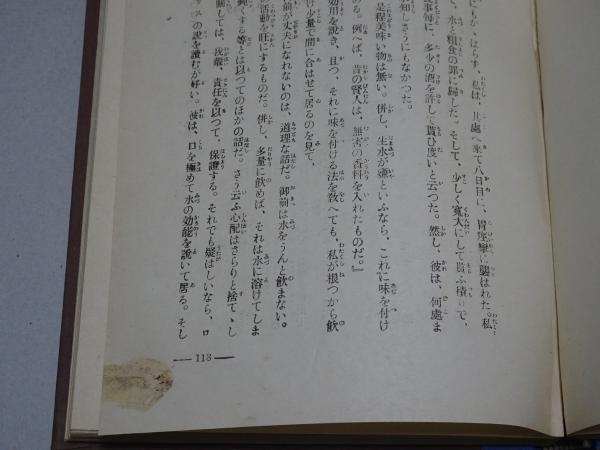 にもかゝはらず、私は、其處へ來て八日目に、胃痙攣に襲はれた。私
て、水と粗食の罪に歸した。そして、少しく寬大にして貰ふ積りで、
食事毎に、多少の酒を許して貰ひ度いと云つた。然し、彼は、何處ま
知しさうにもなかつた。
是程美味い物は無い。併し、生水が嫌といふなら、これに味を付け
のる。例へば、昔の賢人は、無害の香料を入れたものだ。』
効用を說き、且つ、それに味を付ける法を敎へても、私が根つから飮
け少量で間に合はせて居るのを見て、
前が丈夫になれないのは、道理な話だ。御前は水をうんと飮まない。
活動を旺にするものだ。併し、多量に飮めば、それは水に溶けてしま
する等とは以つてのほかの話だ。さう云ふ心配はさらりと捨てゝし
關しては、我輩、責任を以つて、保證する。それでも疑はしいなら、ロ
スの說を讀むが好い。彼は、口を極めて水の効能を說いて居る。そし
— 113 —